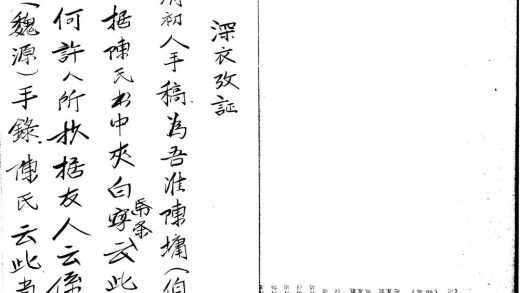 深衣攷証
初人手稿、為吾淮陳墉（伯
据陳氏书中夾白云此
何許人所抄据友人云係
（魏源）手錄、陳氏云此